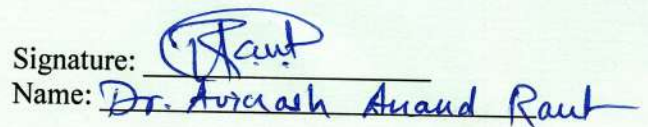 Signature: Raut
Name: Dr. Avinash Anand Raut